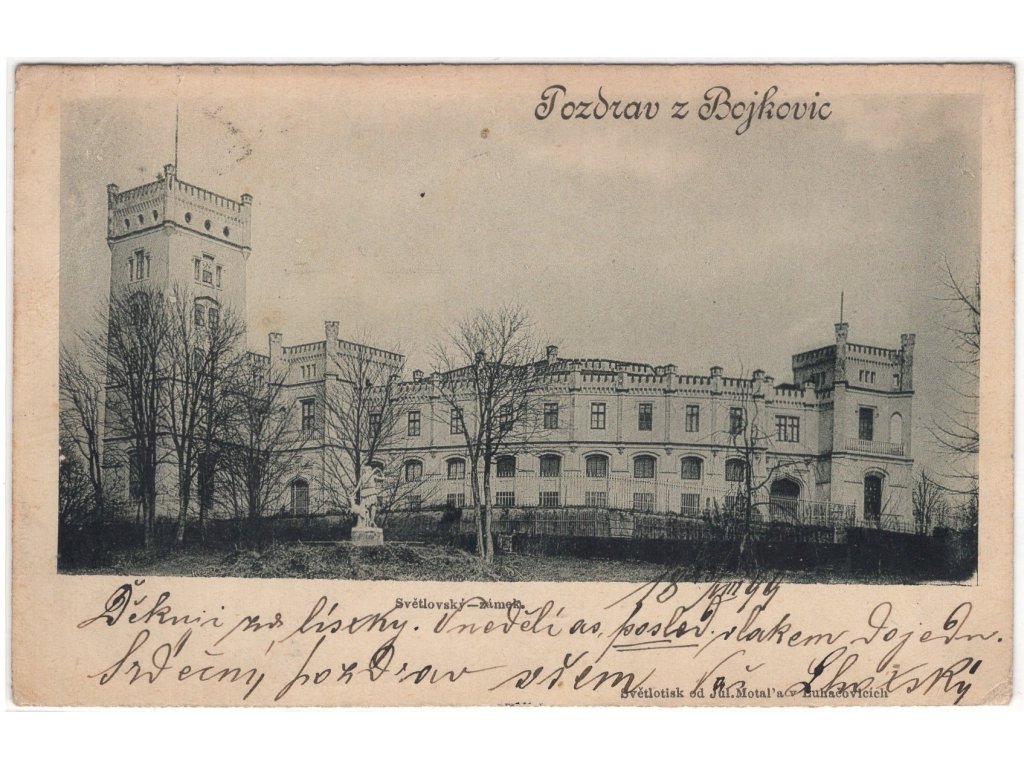 Pozdrav z Bojkovic
Světlovský–zámek.
18 13/VIII 99
Děkuji za lístky. V neděli as posled. vlakem dojedu.
Srdečný pozdrav všem Váš
Světlotisk od Jul. Motal'a v Luhačovicích